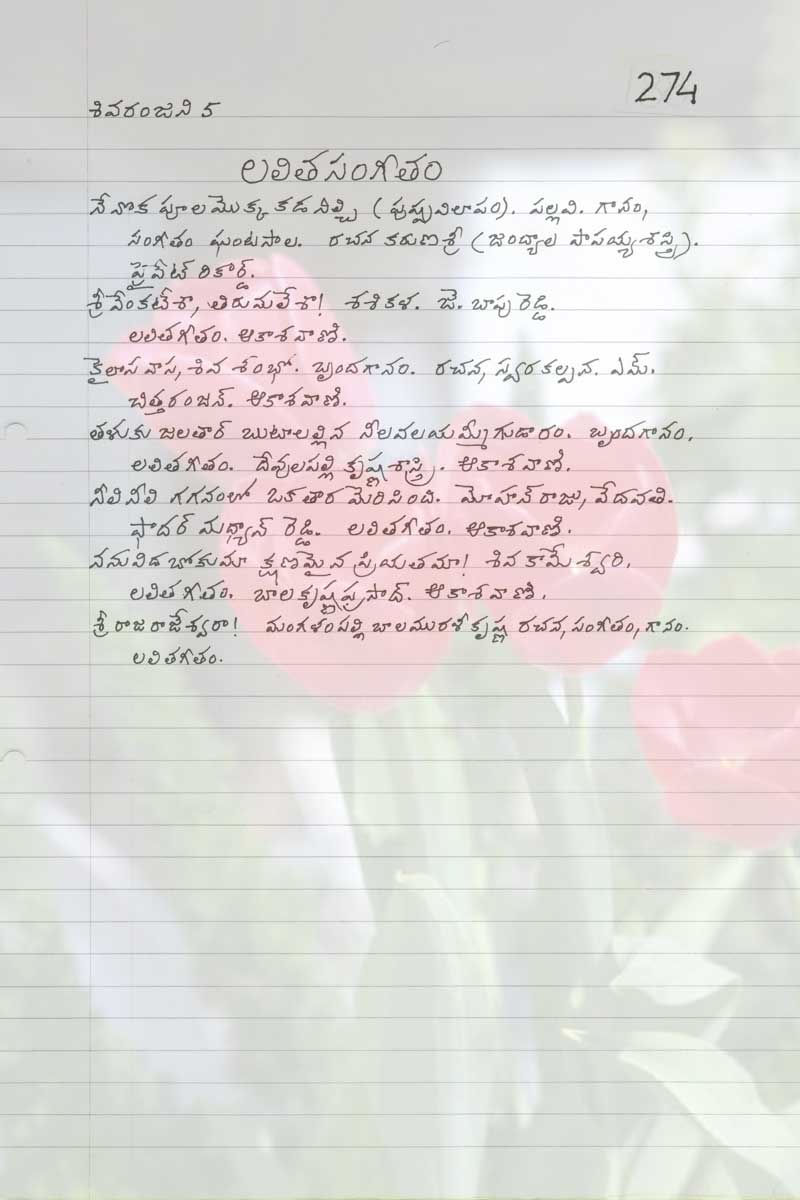 274
శివరంజని 5
లలితసంగీతం
నేనొక పూలమొక్క కడ నిల్చి (పుష్పవిలాపం). పల్లవి. గానం,
సంగీతం ఘంటసాల. రచన కరుణశ్రీ (జంధ్యాల పాపయ్యశాస్త్రి).
ప్రైవేట్ రికార్డ్.
శ్రీ వేంకటేశా, తిరుమలేశా! శశికళ. జె. బాపురెడ్డి.
లలితగీతం. ఆకాశవాణి.
కైలాసవాస, శివ శంభో. బృందగానం. రచన, స్వరకల్పన. ఎమ్.
చిత్తరంజన్. ఆకాశవాణి.
తళుకు జలతార్ బుటాలల్లిన నీలవలయమ్మీగుడారం. బృందగానం.
లలితగీతం. దేవులపల్లి కృష్ణశాస్త్రి. ఆకాశవాణి.
నీలి నీలి గగనంలో ఒక తార మెరిసింది. మోహన్ రాజు, వేదవతి.
ఫాదర్ రెడ్డి. లలితగీతం. ఆకాశవాణి.
ననువిడబోకుమా క్షణమైన ప్రియతమా! శివ కామేశ్వరి.
లలితగీతం. బాలకృష్ణప్రసాద్. ఆకాశవాణి.
శ్రీ రాజరాజేశ్వరా! మంగళంపల్లి బాలమురళీకృష్ణ రచన, సంగీతం, గానం.
లలితగీతం.